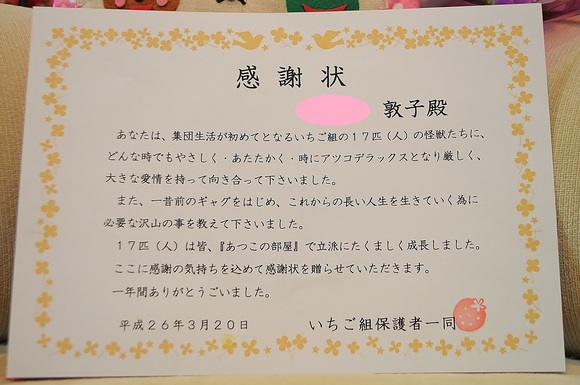 感謝状
敦子殿
あなたは、集団生活が初めてとなるいちご組の17匹(人)の怪獣たちに、
どんな時でもやさしく・あたたかく・時にアツコデラックスとなり厳しく、
大きな愛情を持って向き合って下さいました。
また、一昔前のギャグをはじめ、これからの長い人生を生きていく為に
必要な沢山の事を教えて下さいました。
17匹(人)は皆、『あつこの部屋』で立派にたくましく成長しました。
ここに感謝の気持ちを込めて感謝状を贈らせていただきます。
一年間ありがとうございました。
平成26年3月20日
いちご組保護者一同